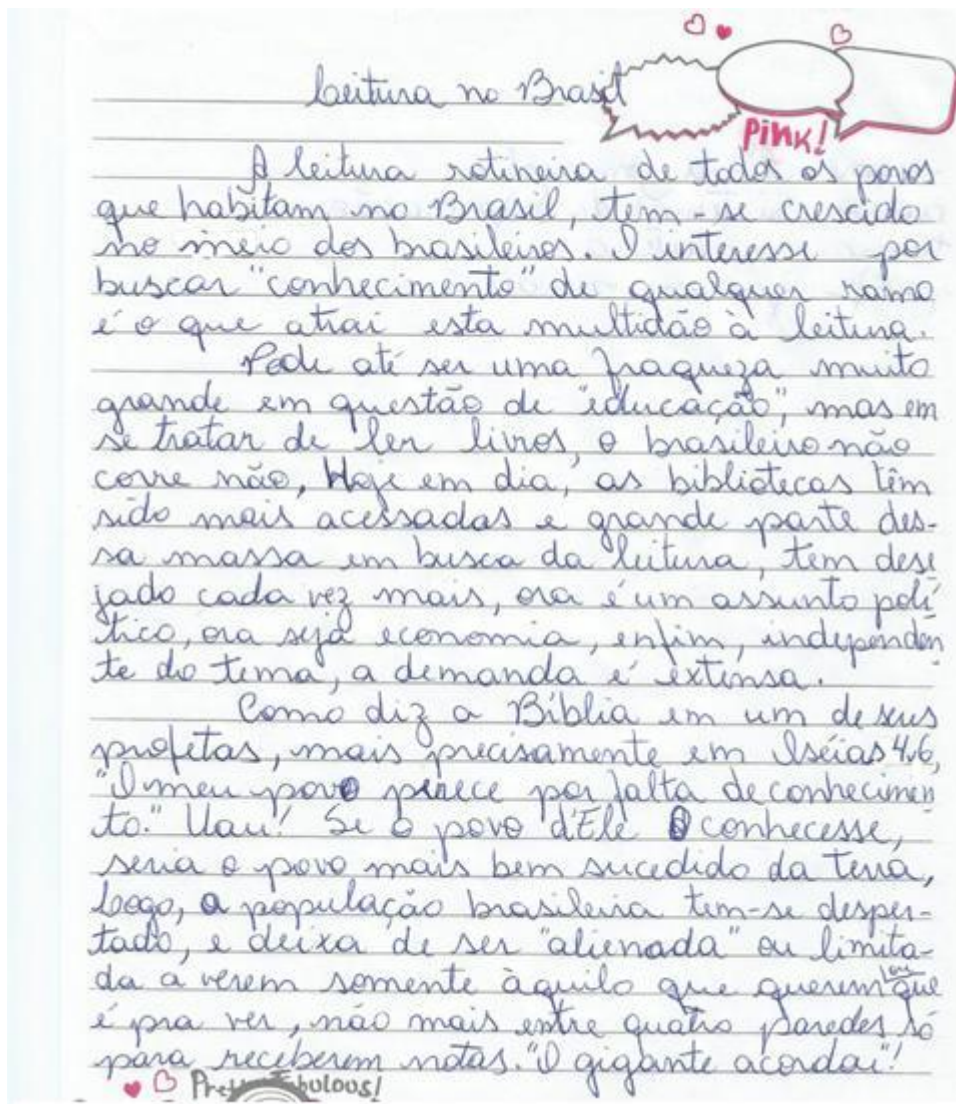 Leitura no Brasil
PiNK!
A leitura rotineira de todos os povos
que habitam no Brasil, tem-se crescido
no meio dos brasileiros. O interesse por
buscar "conhecimento" de qualquer ramo
é o que atrai esta multidão à leitura.
Pode até ser uma fraqueza muito
grande em questão de "educação", mas em
se tratar de ler livros, o brasileiro não
corre não, Hoje em dia, as bibliotecas têm
sido mais acessadas e grande parte des-
sa massa em busca da leitura, tem dese
jado cada vez mais, ora é um assunto polí
tico, ora seja economia, enfim, independen
te do tema, a demanda é extensa.
Como diz a Bíblia em um de seus
profetas, mais precisamente em Iséias 4.6,
"O meu povo perece por falta de conhecimen
to." Uau! Se o povo d'Ele O conhecesse,
seria o povo mais bem sucedido da terra,
Logo, a população brasileira tem-se desper-
tado, e deixa de ser "alienada" ou limita-
da a verem somente àquilo que querem ou que
é pra ver, não mais entre quatro paredes só
para receberem notas. "O gigante acordou"!